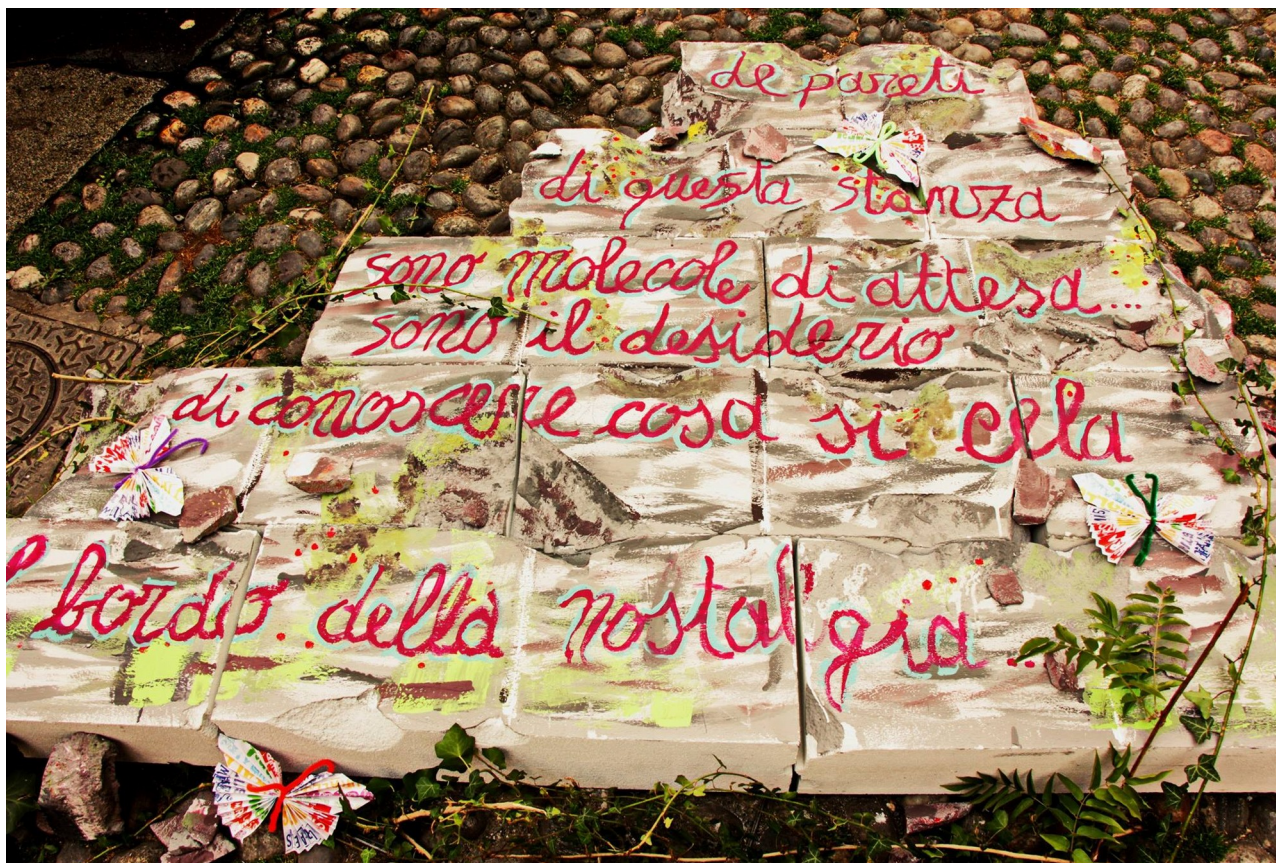 le pareti
di questa stanza
sono molecole di attesa...
sono il desiderio
di conoscere cosa si cela
bordo della nostalgia...